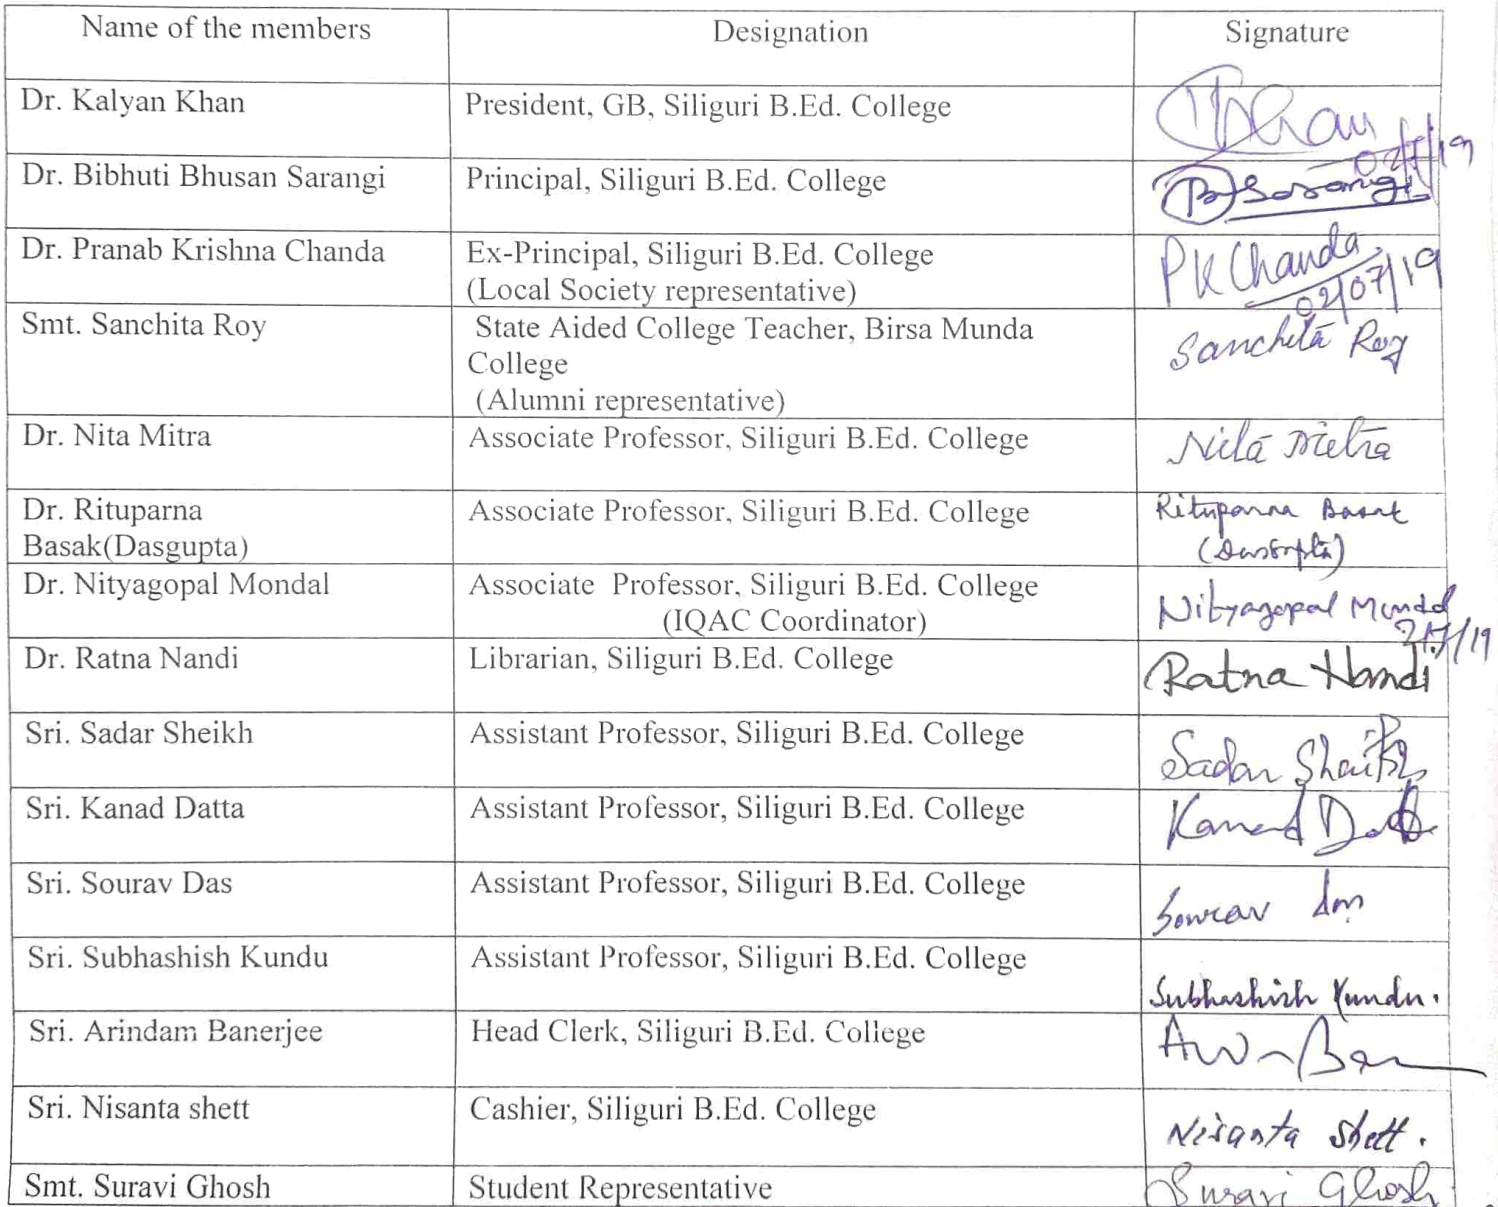 Name of the members Designation Signature
Dr. Kalyan Khan President, GB, Siliguri B.Ed. College Khan
02/7/19
Dr. Bibhuti Bhusan Sarangi Principal, Siliguri B.Ed. College B Sarangi
Dr. Pranab Krishna Chanda Ex-Principal, Siliguri B.Ed. College PK Chanda
(Local Society representative) 02/07/19
Smt. Sanchita Roy State Aided College Teacher, Birsa Munda Sanchita Roy
College
(Alumni representative)
Dr. Nita Mitra Associate Professor, Siliguri B.Ed. College Nita Mitra
Dr. Rituparna Associate Professor, Siliguri B.Ed. College Rituparna Basak
Basak(Dasgupta) (Dasgupta)
Dr. Nityagopal Mondal Associate Professor, Siliguri B.Ed. College Nityagopal Mondal
(IQAC Coordinator) 2/7/19
Dr. Ratna Nandi Librarian, Siliguri B.Ed. College Ratna Nandi
Sri. Sadar Sheikh Assistant Professor, Siliguri B.Ed. College Sadar Shaikh
Sri. Kanad Datta Assistant Professor, Siliguri B.Ed. College Kanad Datta
Sri. Sourav Das Assistant Professor, Siliguri B.Ed. College Sourav Das
Sri. Subhashish Kundu Assistant Professor, Siliguri B.Ed. College Subhashish Kundu.
Sri. Arindam Banerjee Head Clerk, Siliguri B.Ed. College
Sri. Nisanta shett Cashier, Siliguri B.Ed. College Nisanta Shett.
Smt. Suravi Ghosh Student Representative Suravi Ghosh